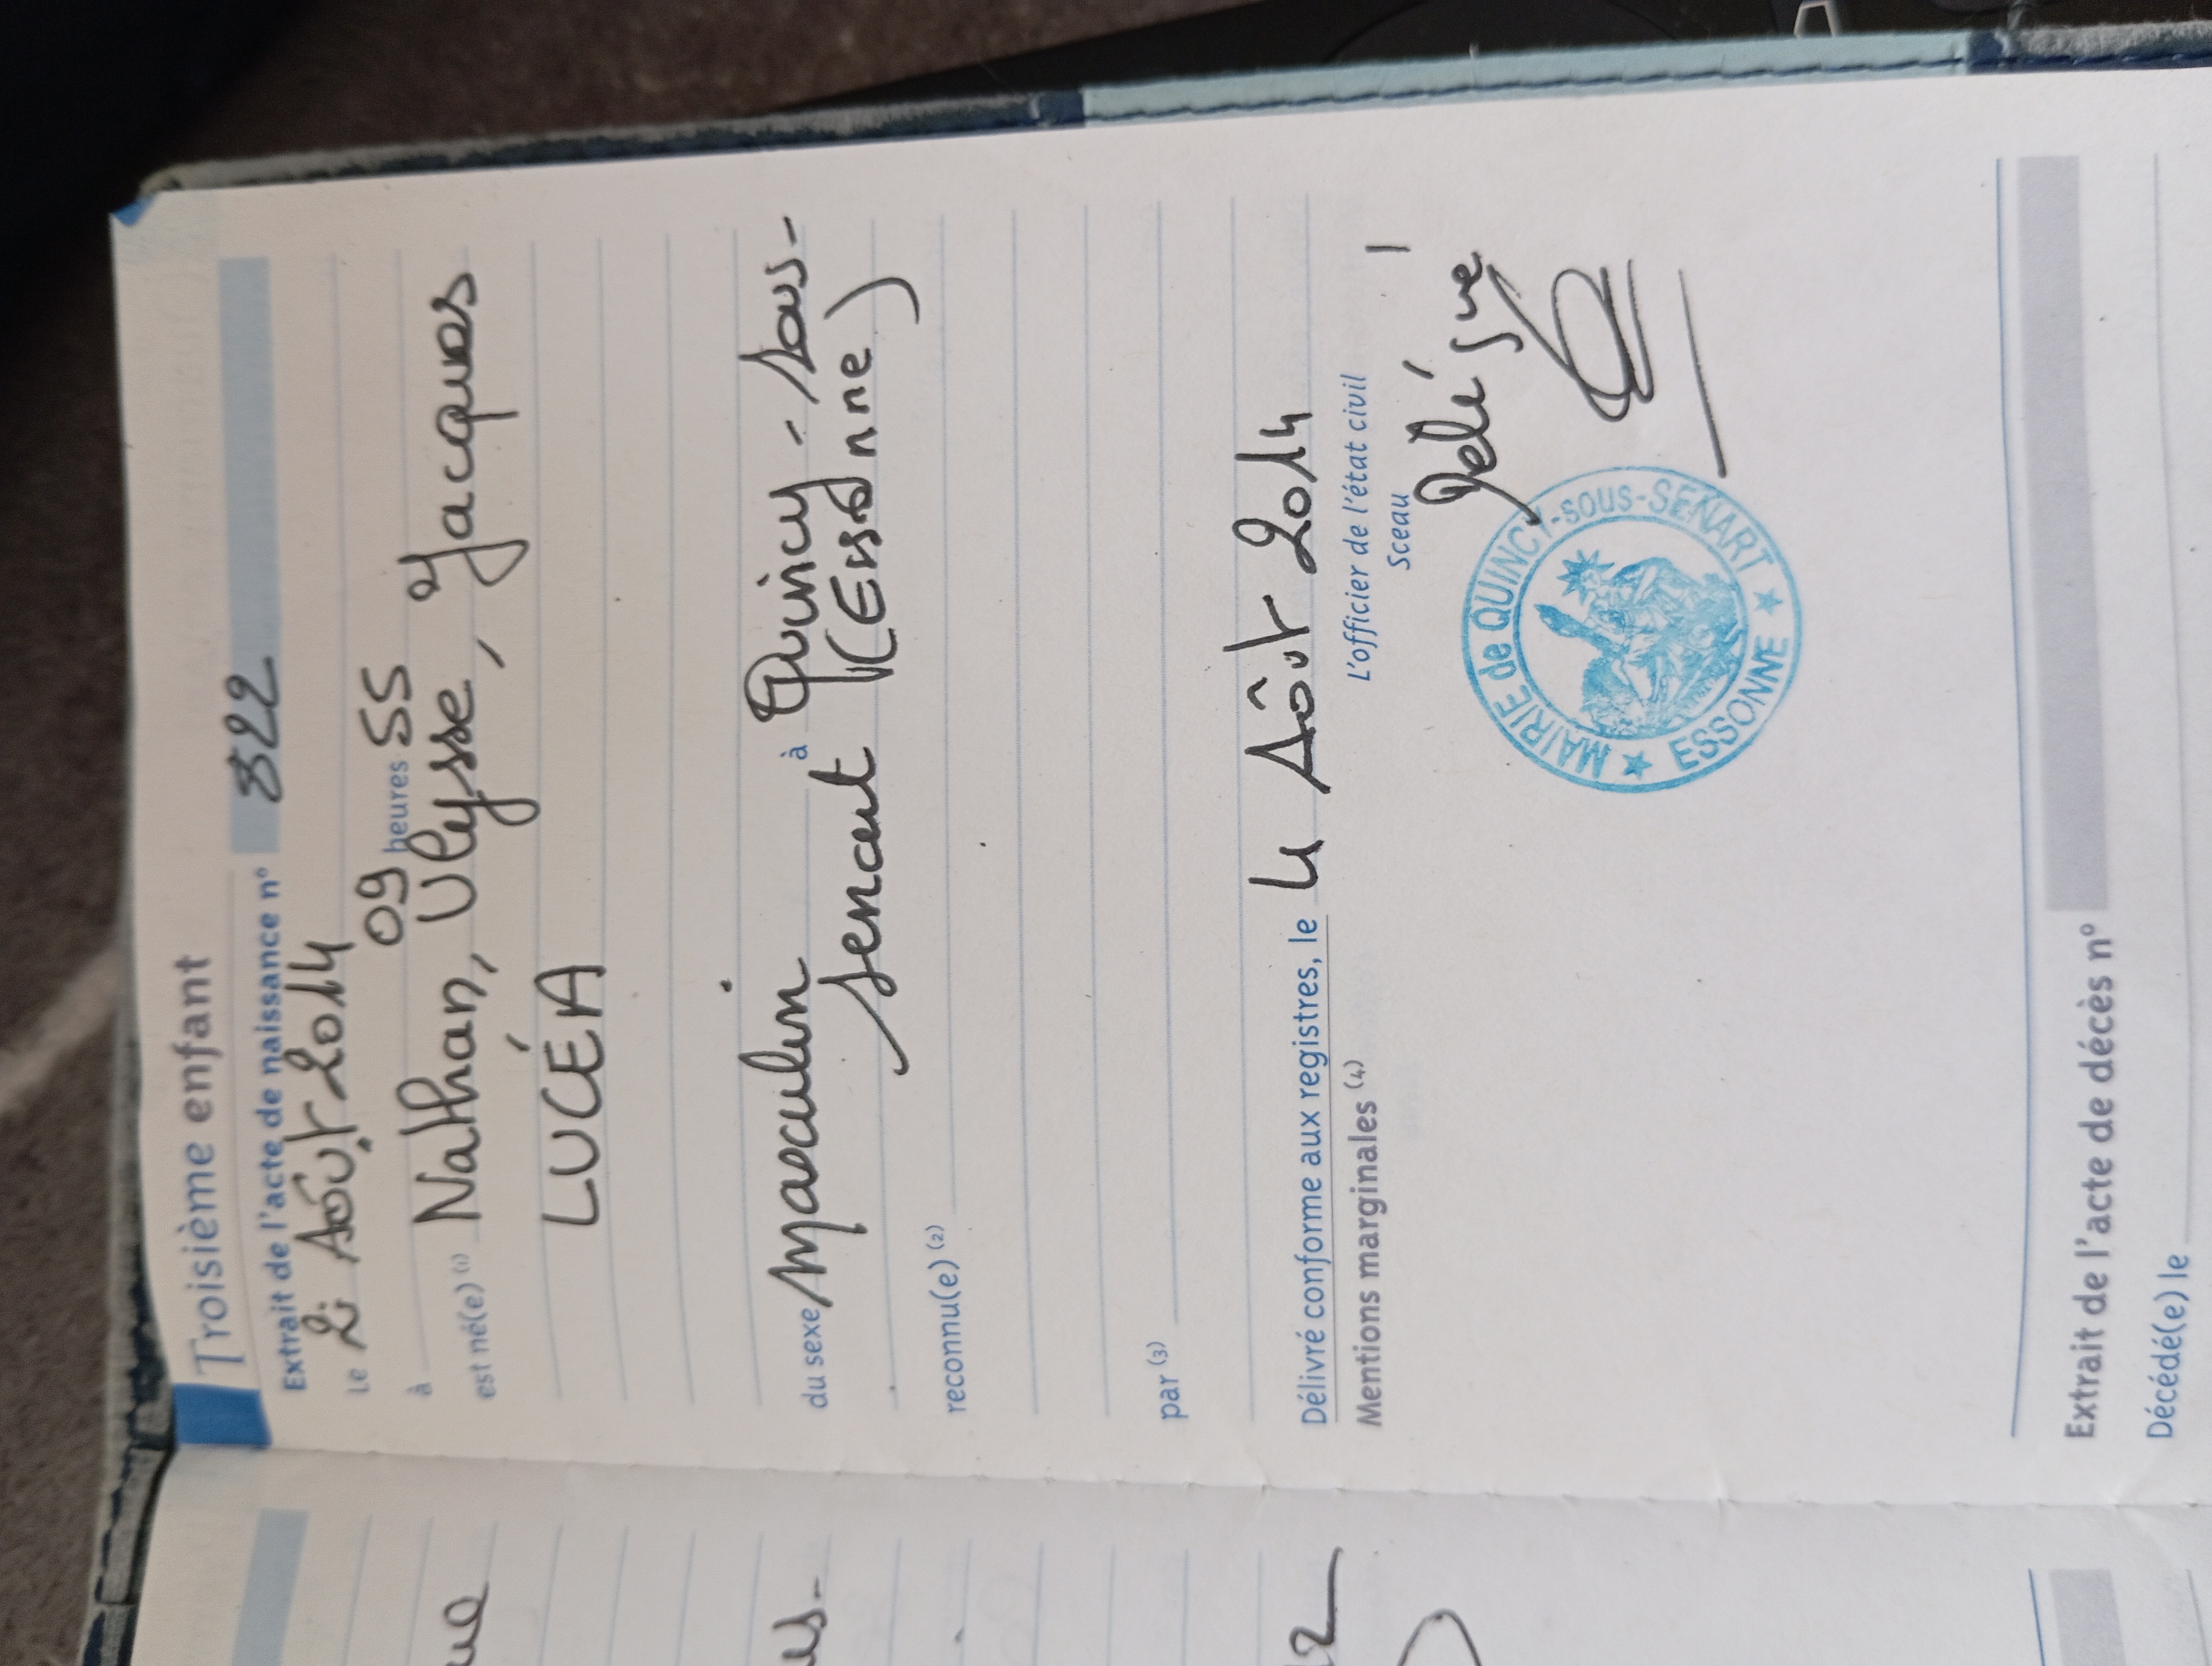 Troisième enfant
Extrait de l'acte de naissance n° 322
Le 2 Aôut 2014
à 09 heures 55
est né(e) (1) Nathan, Ulysse, Jacques
LUCÉA
du sexe masculin à Quincy-sous-
senart (Essonne)
reconnu(e) (2)
par (3)
Délivré conforme aux registres, le 4 Aôut 2014
Mentions marginales (4)
L'officier de l'état civil
Sceau
MAIRIE de QUINCY-sous-SENART
★ ESSONNE ★
Extrait de l'acte de décès n°
Décédé(e) le